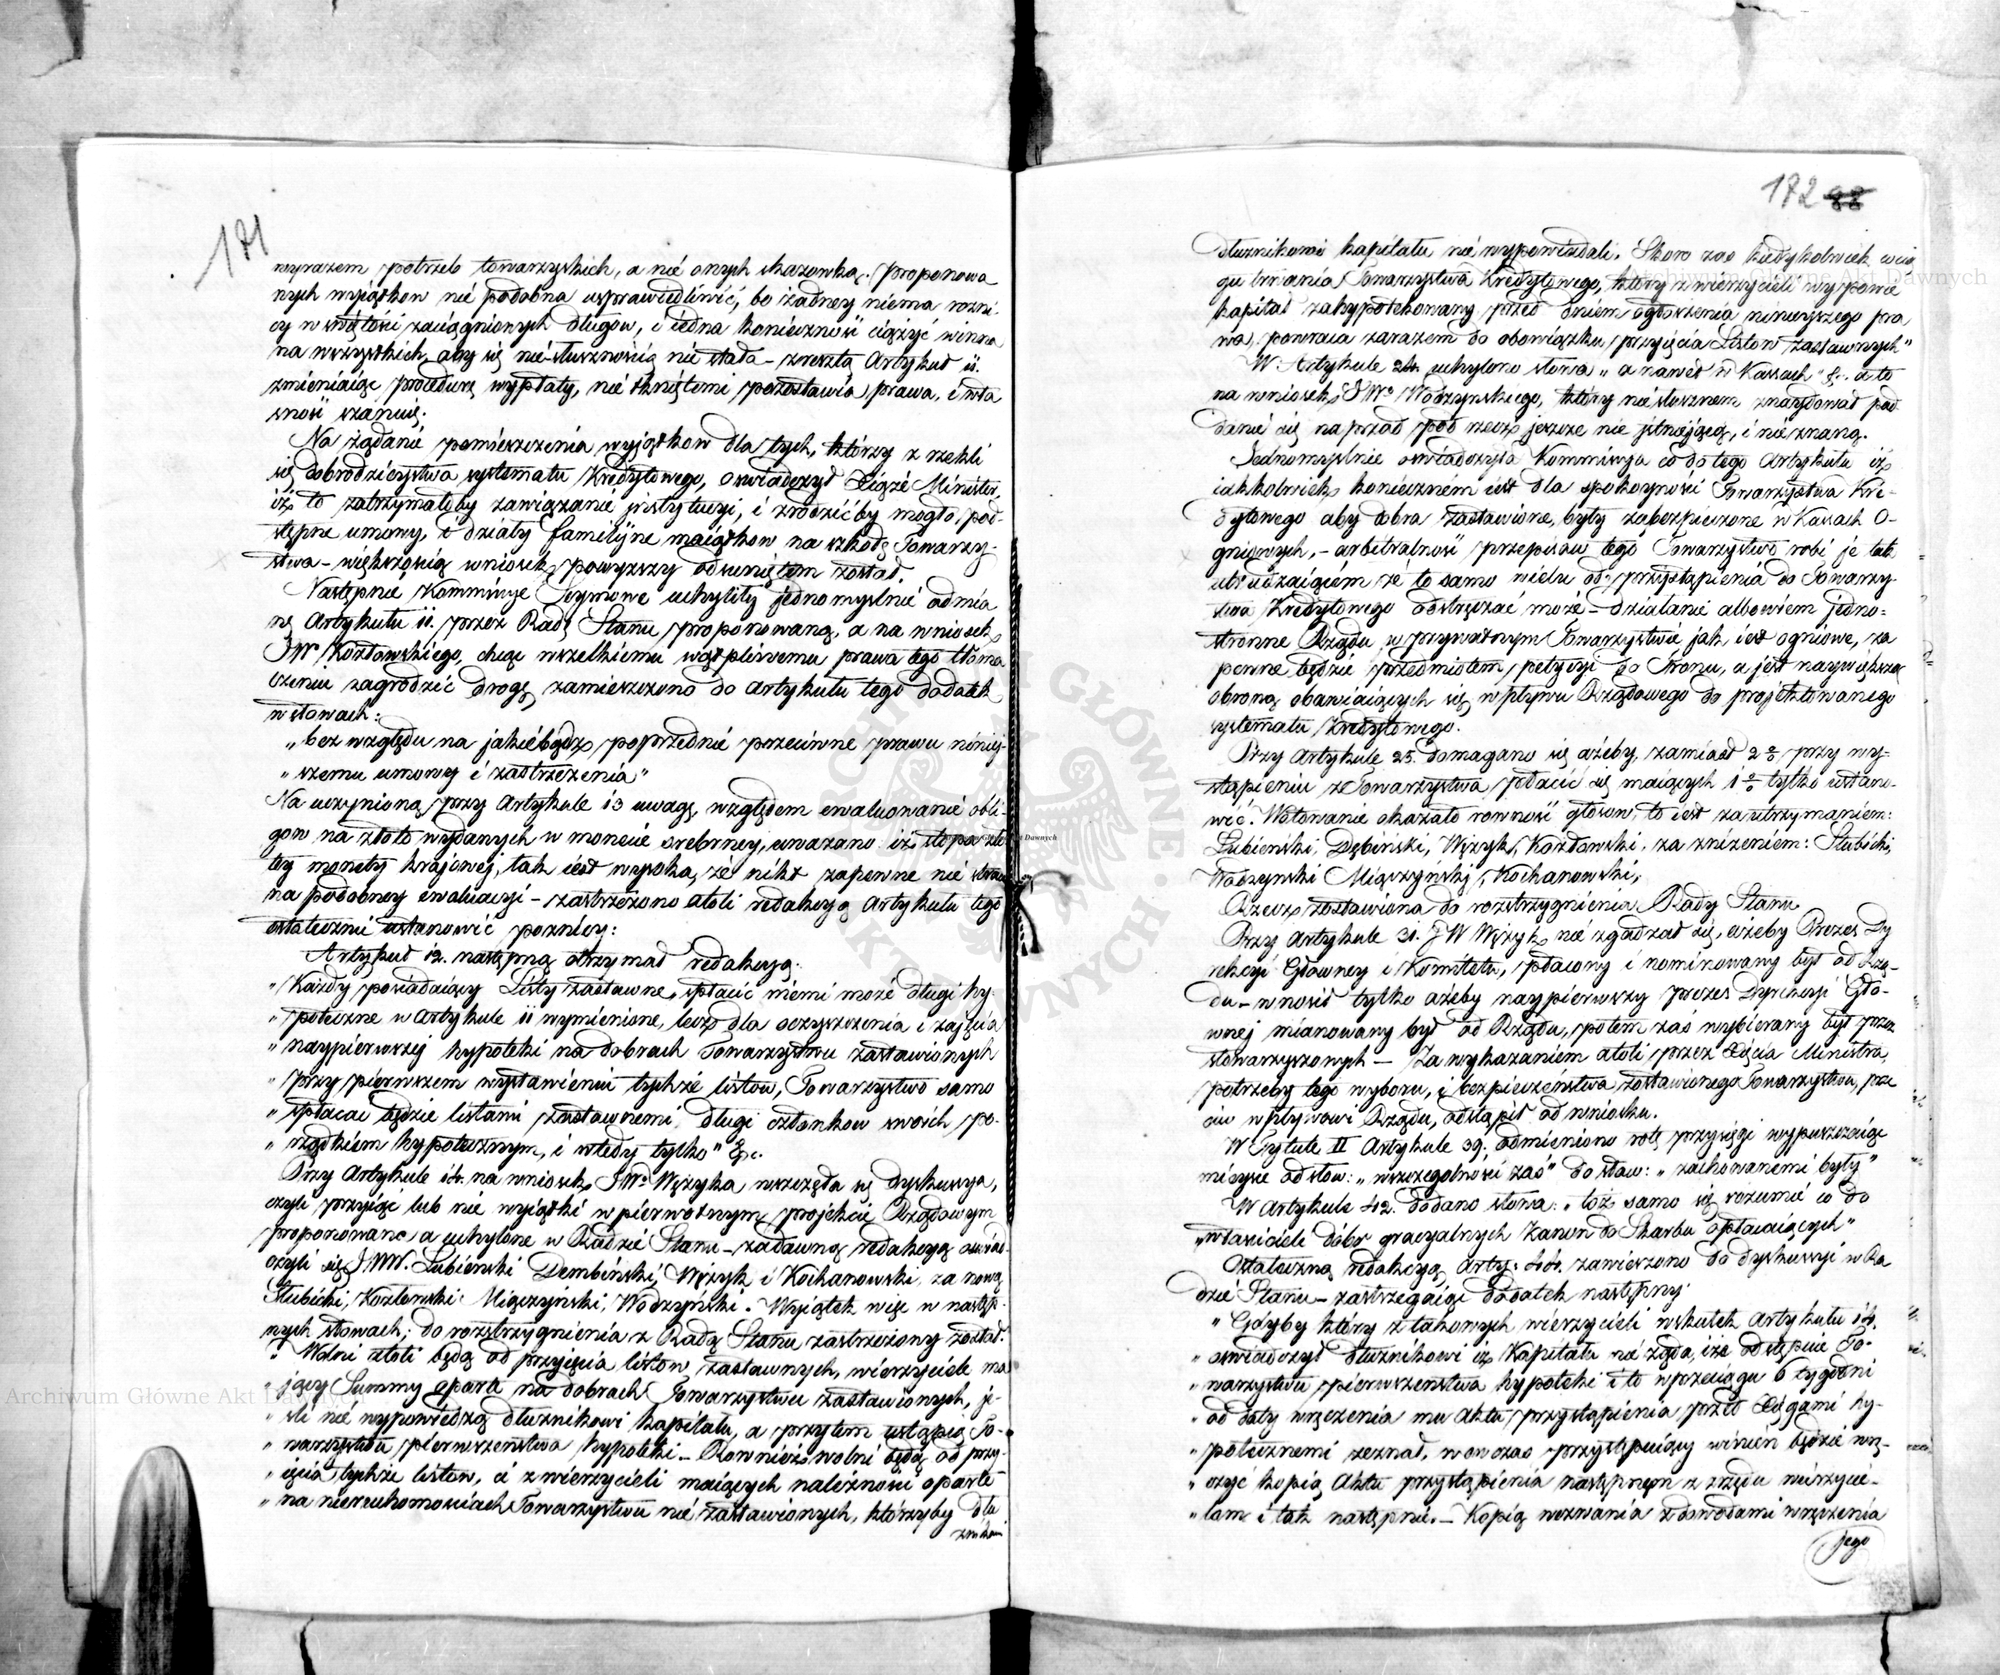 171
wyrazem potrzeb towarzyskich, a nie onych skazowką. proponowa
nych wyiątkow nie podobna usprawiedliwić, bo żadney niema rożni
cy w świętości zaciągnionych długow, i iedna konieczność ciążyć winna
na wszystkich, aby się niesłusznością nie stała – zresztą Artykuł 11.
zmieniaiąc procedurę wypłaty, nie tkniętemi pozostawia prawa, i wła
sność szanuie.
Na żądanie pomieszczenia wyjątkow dla tych, którzy z rzekli
się dobrodzieystwa systematu Kredytowego, oswiadczył Xiąże Minister,
iż to zatrzymałoby zawiązanie jnstytucyi, i zrodzićby mogło, pod-
stępne umowy, i działy familijne maiątkow na szkodę Towarzy-
stwa – większością wniosek powyzszy odsuniętem został.
Następnie Kommissye Seymowe uchyliły jednomyslnie odmia
nę Artykułu 11. przez Radę Stanu proponowaną, a na wniosek
JW Kozłowskiego, chcąc wszelkiemu wątpliwemu prawa tego tłoma
czeniu zagrodzić drogę zamieszczono do Artykułu tego dodatek
w słowach:
„bez względu na jakiebądz poprzednie przeciwne prawu niniej-
„szemu umowy i zastrzeżenia"
Na uczynioną przy Artykule 13 uwagę, względem ewaluowanie obli-
gow na złoto wydanych w monecie srebrney, uwazano iż stopa zło
tey monety krajowej, tak iest wysoka, że nikt zapewne nie straci
na podobney ewaluacyi – zastrzeżono atoli redakcyą Artykułu tego
ostatecznie ustanowić pozniey:
Artykuł 12. następną otrzymał redakcyą.
„Każdy posiadaiący Listy zastawne, spłacić niemi może długi hy-
„poteczne w Artykule 11 wymienione, lecz dla oczyszczenia i zajęcia
„naypierwszej hypoteki na dobrach Towarzystwu zastawionych
„przy pierwszem wystawieniu tychże listow, Towarzystwo samo
„spłacać będzie listami zastawnemi długi członkow swoich po-
„rządkiem hypotecznym, i wtedy tylko" &c.
Przy Artykule 14. na wniosek JWo Wężyka wszczęła się dyskussya,
czyli przyiąć lub nie wyiątki w pierwotnym projekcie Rządowym
proponowane, a uchylone w Radzie Stanu – zadawną redakcyą oswiad-
czyli się JWW. Łubieński Dembiński, Wężyk i Kochanowski, za nową
Słubicki, Kozłowski Miączyński, Wodzyński. Wyiątek więc w następ-
nych słowach, do rozstrzygnienia z Radą Stanu zastrzeżony został.
„Wolni atoli będą od przyięcia listow zastawnych, wierzyciele ma
„jący Summy oparte na dobrach Towarzystwu zastawionych, je-
„sli nie wypowiedzą dłużnikowi kapitału, a przytem ustąpią To-
„warzystwu pierwszenstwa hypoteki – Rownież wolni będą od przy-
„ięcia tychże listow, ci z wierzycieli maiących należności oparte
„na nieruchomosciach Towarzystwu nie zastawionych, którzyby dłu
172 88
dłużnikowi kapitału nie wypowiedali. Skoro zaś kiedykolwiek wcią
gu trwania Towarzystwa Kredytowego, który z wierzycieli wypowie
kapitał zahypotekowany przed dniem ogłoszenia ninieyszego pra
wa, powraca zarazem do obowiązku przyięcia Listow zastawnych"
W Artykule 24. uchylono słowa „a nawet w Kassach" &c. a to
na wniosek JWo Wodzyńskiego, który niesłusznem znaydował pod
danie się naprzod pod rzecz jeszcze nie jstnejącą, i nieznaną.
Jednomyslnie oswiadczyła Kommissya co do tego Artykułu iż
iakkolwiek koniecznem iest dla spokoyności Towarzystwa Kre-
dytowego aby dobra zastawione, były zabezpieczone w Kassach O-
gniowych, – arbitralność przepisu tego Towarzystwo robi je tak
że to samo wielu od przystąpienia do Towarzy
stwa Kredytowego odstręczać może – działanie albowiem jedno-
stronne Rządu, w prywatnym Towarzystwie jak iest ogniowe, za
pewne będzie przedmiotem petycyi do Tronu, a jest naywiększą
obroną obawiaiących się wpływu Rządowego do projektowanego
systematu Kredytowego.
Przy Artykule 25. domagano się ażeby, zamiast 2 % przy wy-
stąpieniu z Towarzystwa płacić się maiących 1 % tylko ustano-
wić. Wotowanie okazało rowność głosow, to iest za utrzymaniem:
Łubieński, Dębiński, Wężyk, Kozłowski, za zniżeniem: Słubicki,
Wodzynski Miączyński, Kochanowski,
Rzecz zostawiona do rozstrzygnienia Rady Stanu
Przy Artykule 31. JW Wężyk nie zgadzał się, ażeby Prezes Dy
rekcyi Głowney i Komitetu, płacony i nominowany był od Rzą-
du – wnosił tylko ażeby naypierwszy prezes Dyrekcyi Gło-
wnej mianowany był od Rządu, potem zaś wybierany był przez
stowarzyszonych – Za wykazaniem atoli przez Xięcia Ministra,
potrzeby tego wyboru, i bezpieczeństwa zostawionego Towarzystwu, prze
ciw wpływowi Rządu, odstąpił od wniosku.
W Tytule II Artykule 39. odmieniono rotę przysięgi wypuszczaiąc
mieysce od słow: „wszczegolności zaś" do słow: „zachowanemi były"
W Artykule 42. dodano słowa: „toż samo się rozumie co do
„właścicieli dobr gracyalnych kanon do Skarbu opłacaiących"
Ostateczną redakcyą Arty: 44. zawieszono do dyskussyi w Ra
dzie Stanu – zastrzegaiąc dodatek następny.
„Gdyby który z takowych wierzycieli wskutek Artykułu 14.
„oswiadczył dłużnikowi iż Kapitału nie żąda, i że odstępuie To-
„warzystwu pierwszenstwa hypoteki i to wprzeciągu 6 tygodni
„od daty wręczenia mu Aktu przystąpienia przed Xięgami hy-
„potecznemi zeznał, w owczas przystępuiący winien będzie wrę-
„czyć kopią Aktu przystąpienia następnym z rzędu wierzycie-
„lom i tak następnie. – Kopią wezwania z dowodami wręczenia
jego